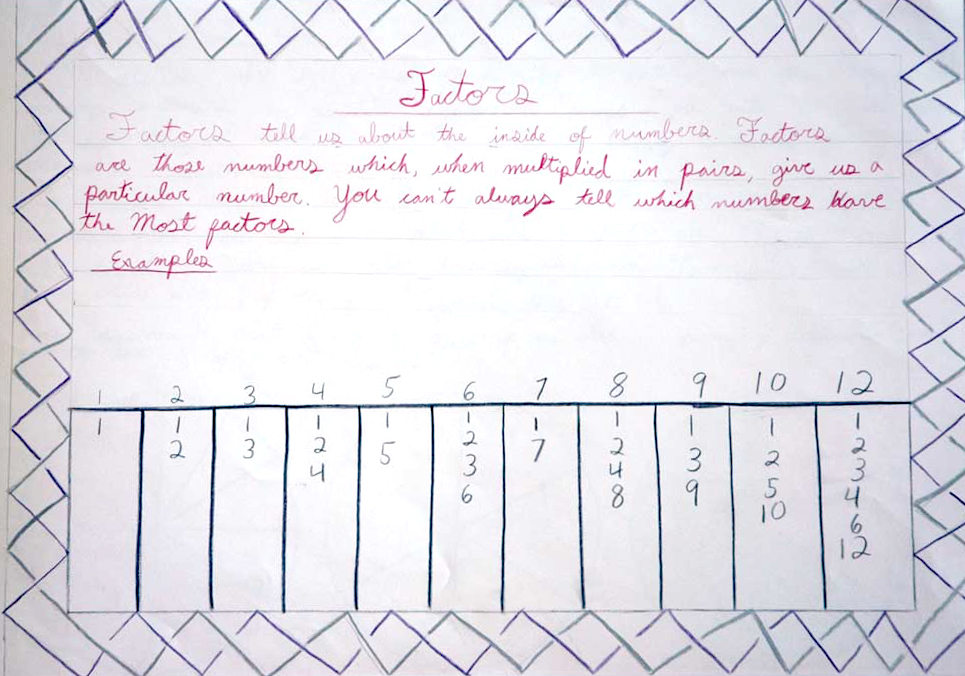 Factors
Factors tell us about the inside of numbers. Factors
are those numbers which, when multiplied in pairs, give us a
particular number. You can't always tell which numbers have
the Most factors.
Examples
1 2 3 4 5 6 7 8 9 10 12
1 1 1 1 1 1 1 1 1 1 1
2 3 2 5 2 7 2 3 2 2
4 3 4 9 5 3
6 8 10 4
6
12